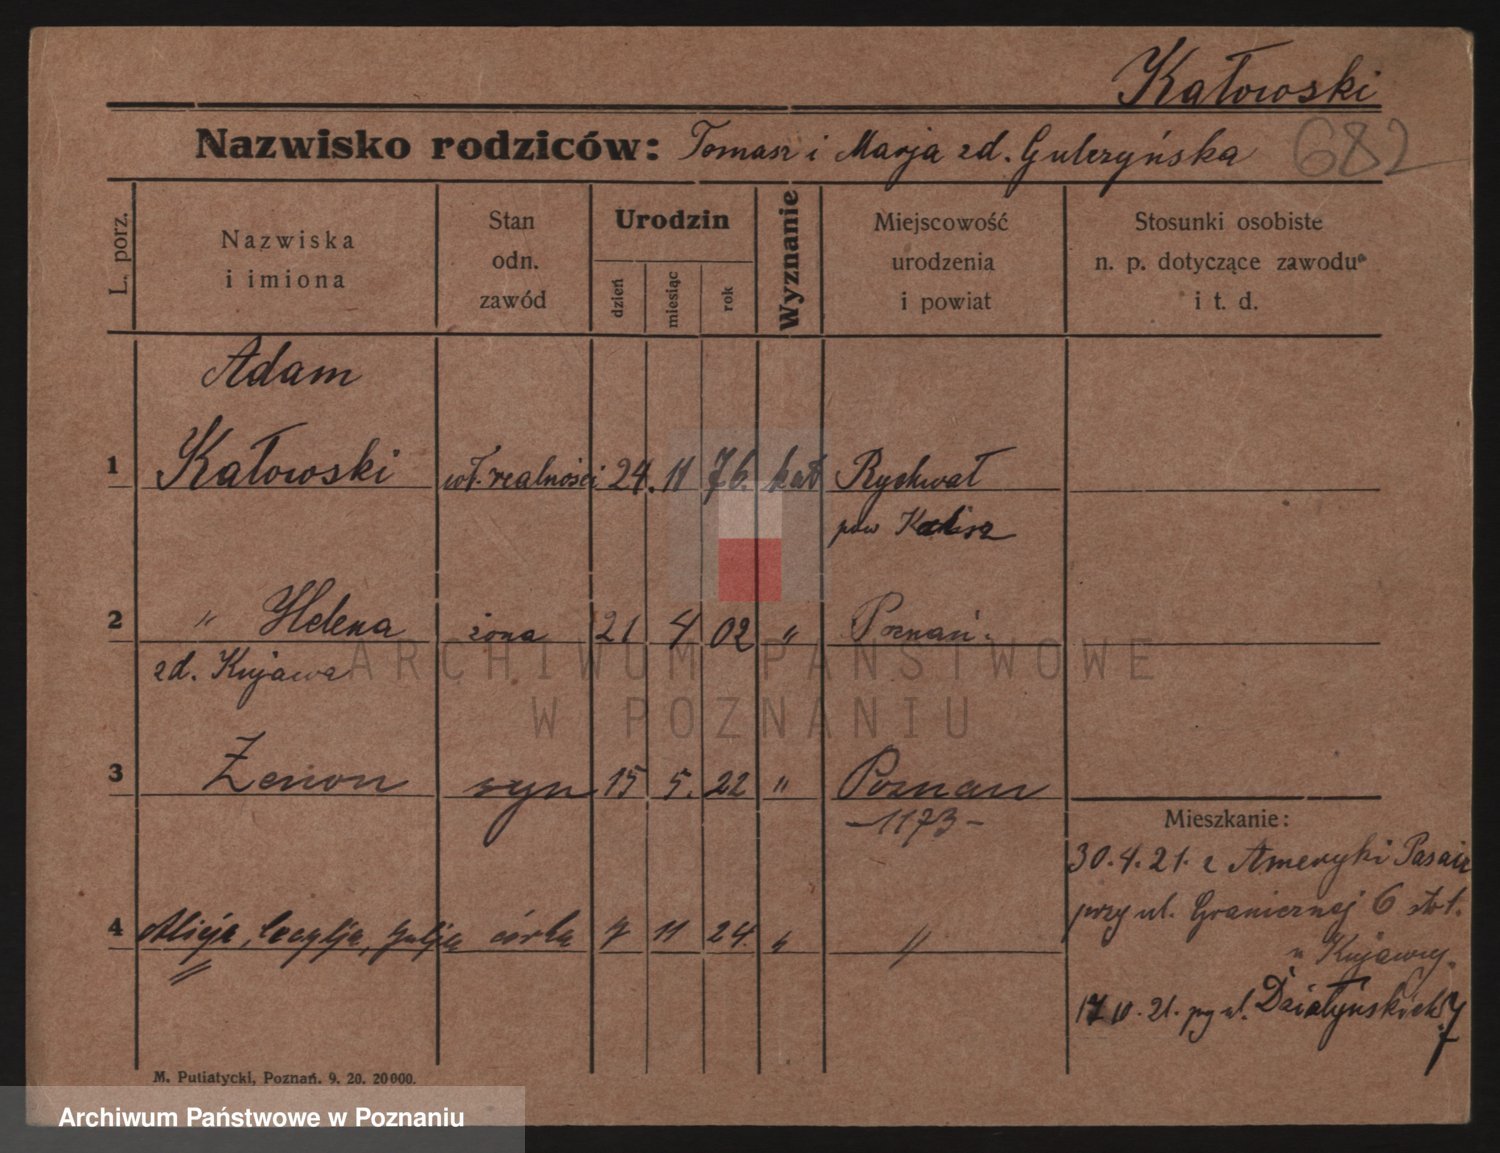 Kałowski
Nazwisko rodziców: Tomasz i Marja zd. Gulczyńska 682
L. porz.
Nazwiska
i imiona
Stan
odn.
zawód
Urodzin
dzień
miesiąc
rok
Wyznanie
Miejscowość
urodzenia
i powiat
Stosunki osobiste
n. p. dotyczące zawodu
i t. d.
Adam
1 Kałowski wł. realności 24. 11 76. kat Rychwał
pow Kalisz
2 " Helena żona 21 4 02 " Poznań.
zd. Kujawa
3 Zenon syn 15 5. 22 " Poznan
-1173-
4 Alicja, Cecylja, Julja córka 7 11 24. " "
Mieszkanie:
30.4.21. z Ameryki Pasaic
przy ul. Granicznej 6
u Kujawy.
17 V. 21. ul. Działyńskich 7
M. Putiatycki, Poznań. 9. 20. 20000.
ARCHIWUM PAŃSTWOWE
W POZNANIU
Archiwum Państwowe w Poznaniu